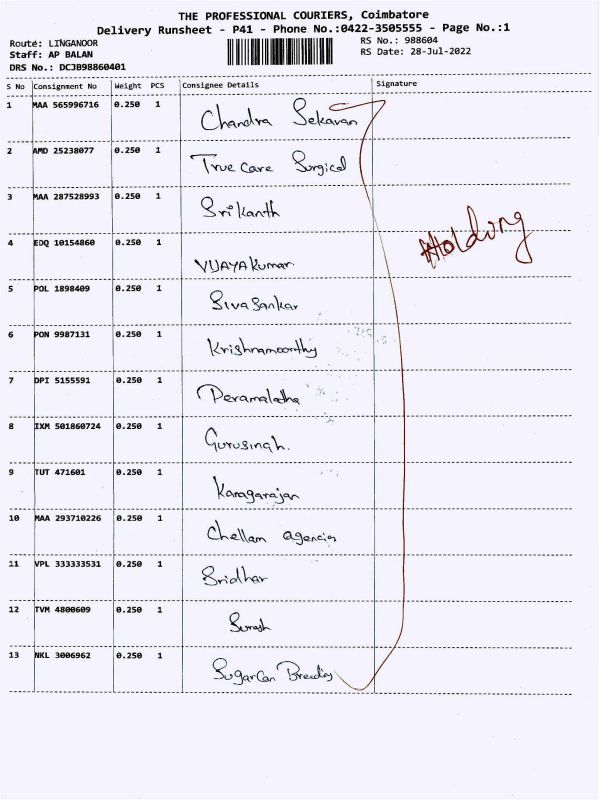 THE PROFESSIONAL COURIERS, Coimbatore
Delivery Runsheet - P41 - Phone No.:0422-3505555 - Page No.:1
Route: LINGANOOR RS No.: 988604
Staff: AP BALAN RS Date: 28-Jul-2022
DRS No.: DCJB98860401
S No Consignment No Weight PCS Consignee Details Signature
1 MAA 565996716 0.250 1 Chandra Sekaran
2 AMD 25238077 0.250 1 True Care Surgical
3 MAA 287528993 0.250 1 Srikanth
Holding
4 EDQ 10154860 0.250 1 VIJAYA Kumar
5 POL 1898409 0.250 1 Siva Sankar
6 PON 9987131 0.250 1 Krishnamoorthy
7 DPI 5155591 0.250 1
8 IXM 501860724 0.250 1 Gurusingh.
9 TUT 471601 0.250 1 Karagarajan
10 MAA 293710226 0.250 1 Chellam agencies
11 VPL 333333531 0.250 1 Sridhar
12 TVM 4800609 0.250 1 Suresh
13 NKL 3006962 0.250 1 SugarCan Breeding